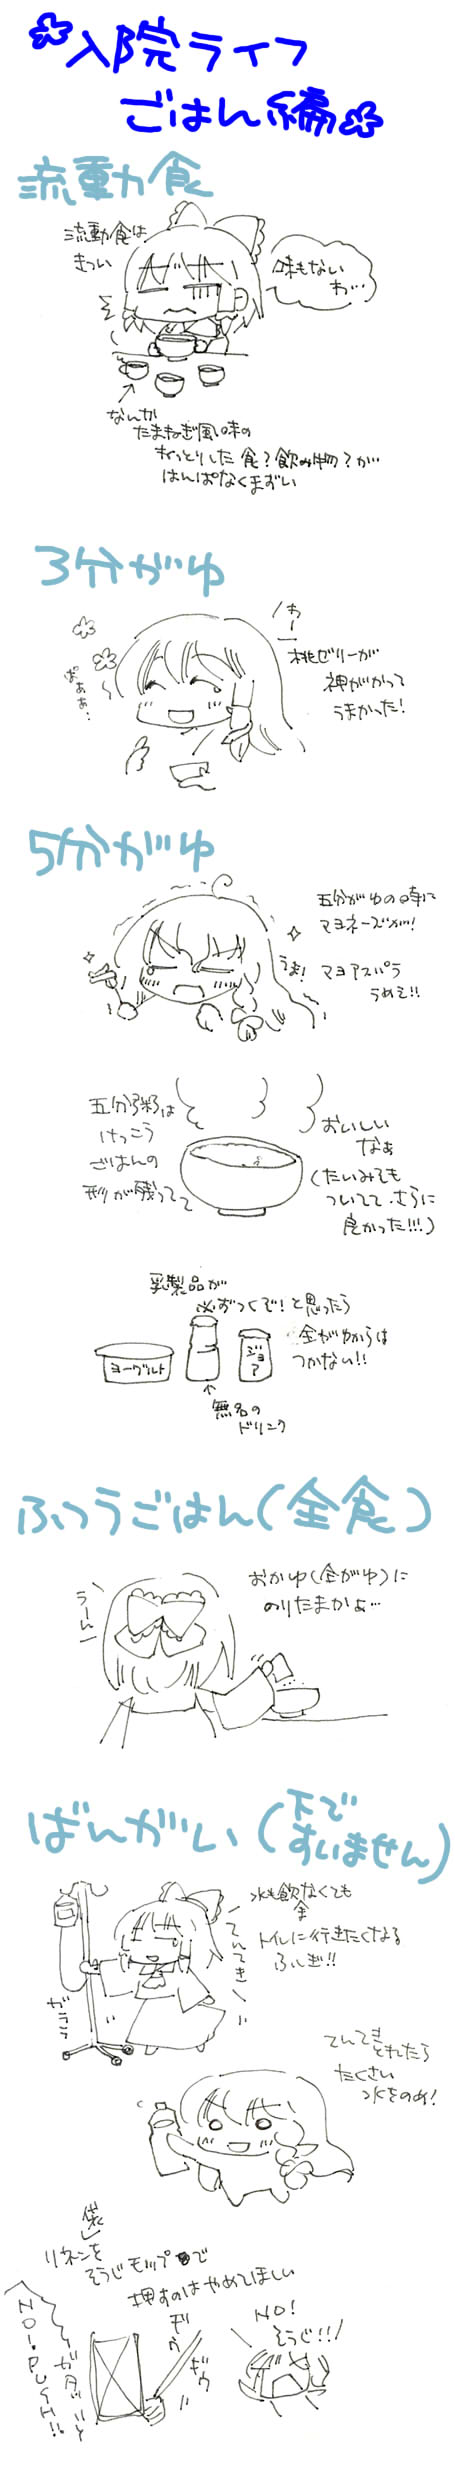 入院ライフ
ごはん編
流動食
流動食は
きつい
味もない
わ…
なんか
たまねぎ風味の
ねっとりした食?飲み物?が…
はんぱなくまずい
3分がゆ
わー
桃ゼリーが
神がかって
うまかった!
ぱぁぁ…
5分がゆ
五分がゆの時に
マヨネーズが!
うぉ!
マヨアスパラ
うめぇ!!
五分粥は
けっこう
ごはんの
形が残ってて
おいしい
なぁ
(たいみそも
ついてて、さらに
良かった!!!)
乳製品が
必ずつくぞ!と思ったら
全がゆからは
つかない!!
ヨーグルト
ジョア
無名の
ドリンク
ふつうごはん(全食)
うーん
おかゆ(全がゆ)に
のりたまかぁ…
ばんがい(下で
すいません)
水も飲なくても
ま
トイレに行きたくなる
ふしぎ!!
てんてき
ガラララ
てんてき
とれたら
たくさい
水をのめ!
袋
リネンを
そうじモップで
押すのはやめてほしい
ギウ
ギウ
NO!
そうじ!!
NO!・PUSH!!